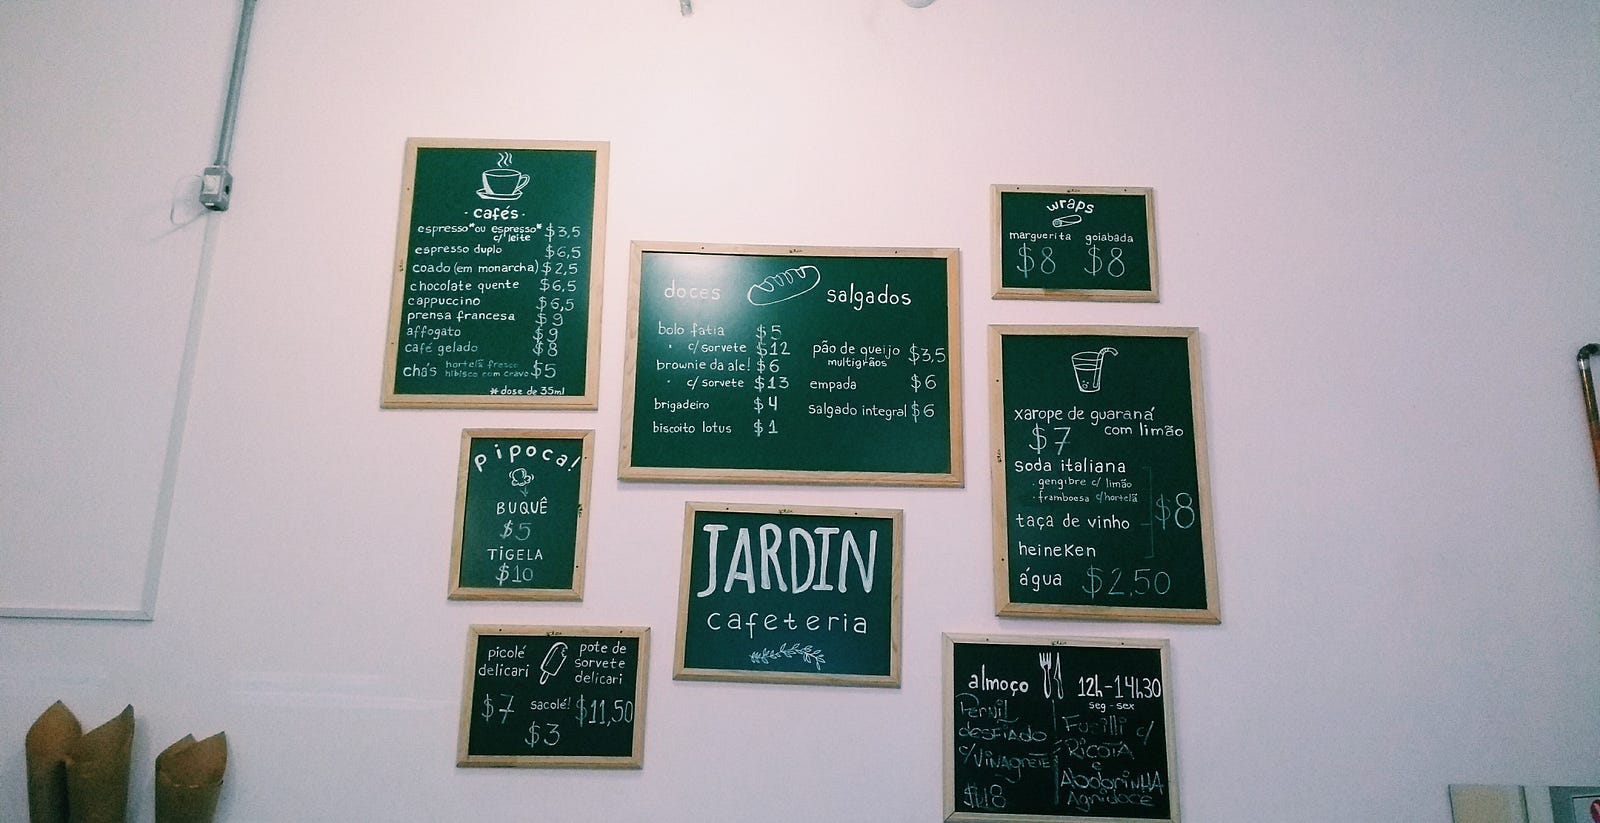 · cafés ·
espresso* ou espresso* c/ leite $3,5
espresso duplo $6,5
coado (em monarcha) $2,5
chocolate quente $6,5
cappuccino $6,5
prensa francesa $9
affogato $9
café gelado $8
chás hortelã fresco $5
hibisco com cravo
* dose de 35ml
pipoca!
BUQUÊ
$5
TIGELA
$10
picolé
delicari
$7
sacolé!
$3
pote de
sorvete
delicari
$11,50
doces
bolo fatia $5
" c/ sorvete $12
brownie da ale! $6
" c/ sorvete $13
brigadeiro $4
biscoito lotus $1
salgados
pão de queijo $3,5
multigrãos
empada $6
salgado integral $6
JARDIN
cafeteria
wraps
marguerita goiabada
$8 $8
xarope de guaraná
com limão
$7
soda italiana
· gengibre c/ limão
· framboesa c/ hortelã
taça de vinho $8
heineken
água $2,50
almoço 12h-14h30
seg - sex
Pernil
desfiado
c/ vinagrete
$18
Fusilli c/
Ricota
e
Abobrinha
Agridoce